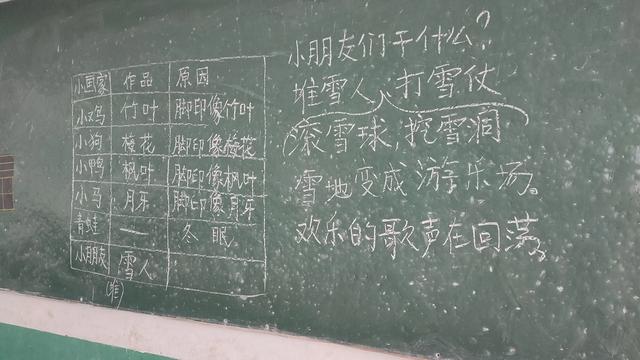 小画家 作品 原因
小鸡 竹叶 脚印像竹叶
小狗 梅花 脚印像梅花
小鸭 枫叶 脚印像枫叶
小马 月牙 脚印像月牙
青蛙 — 冬眠
小朋友 雪人
(堆)
小朋友们干什么?
堆雪人、打雪仗
滚雪球,挖雪洞
雪地变成游乐场。
欢乐的歌声在回荡。